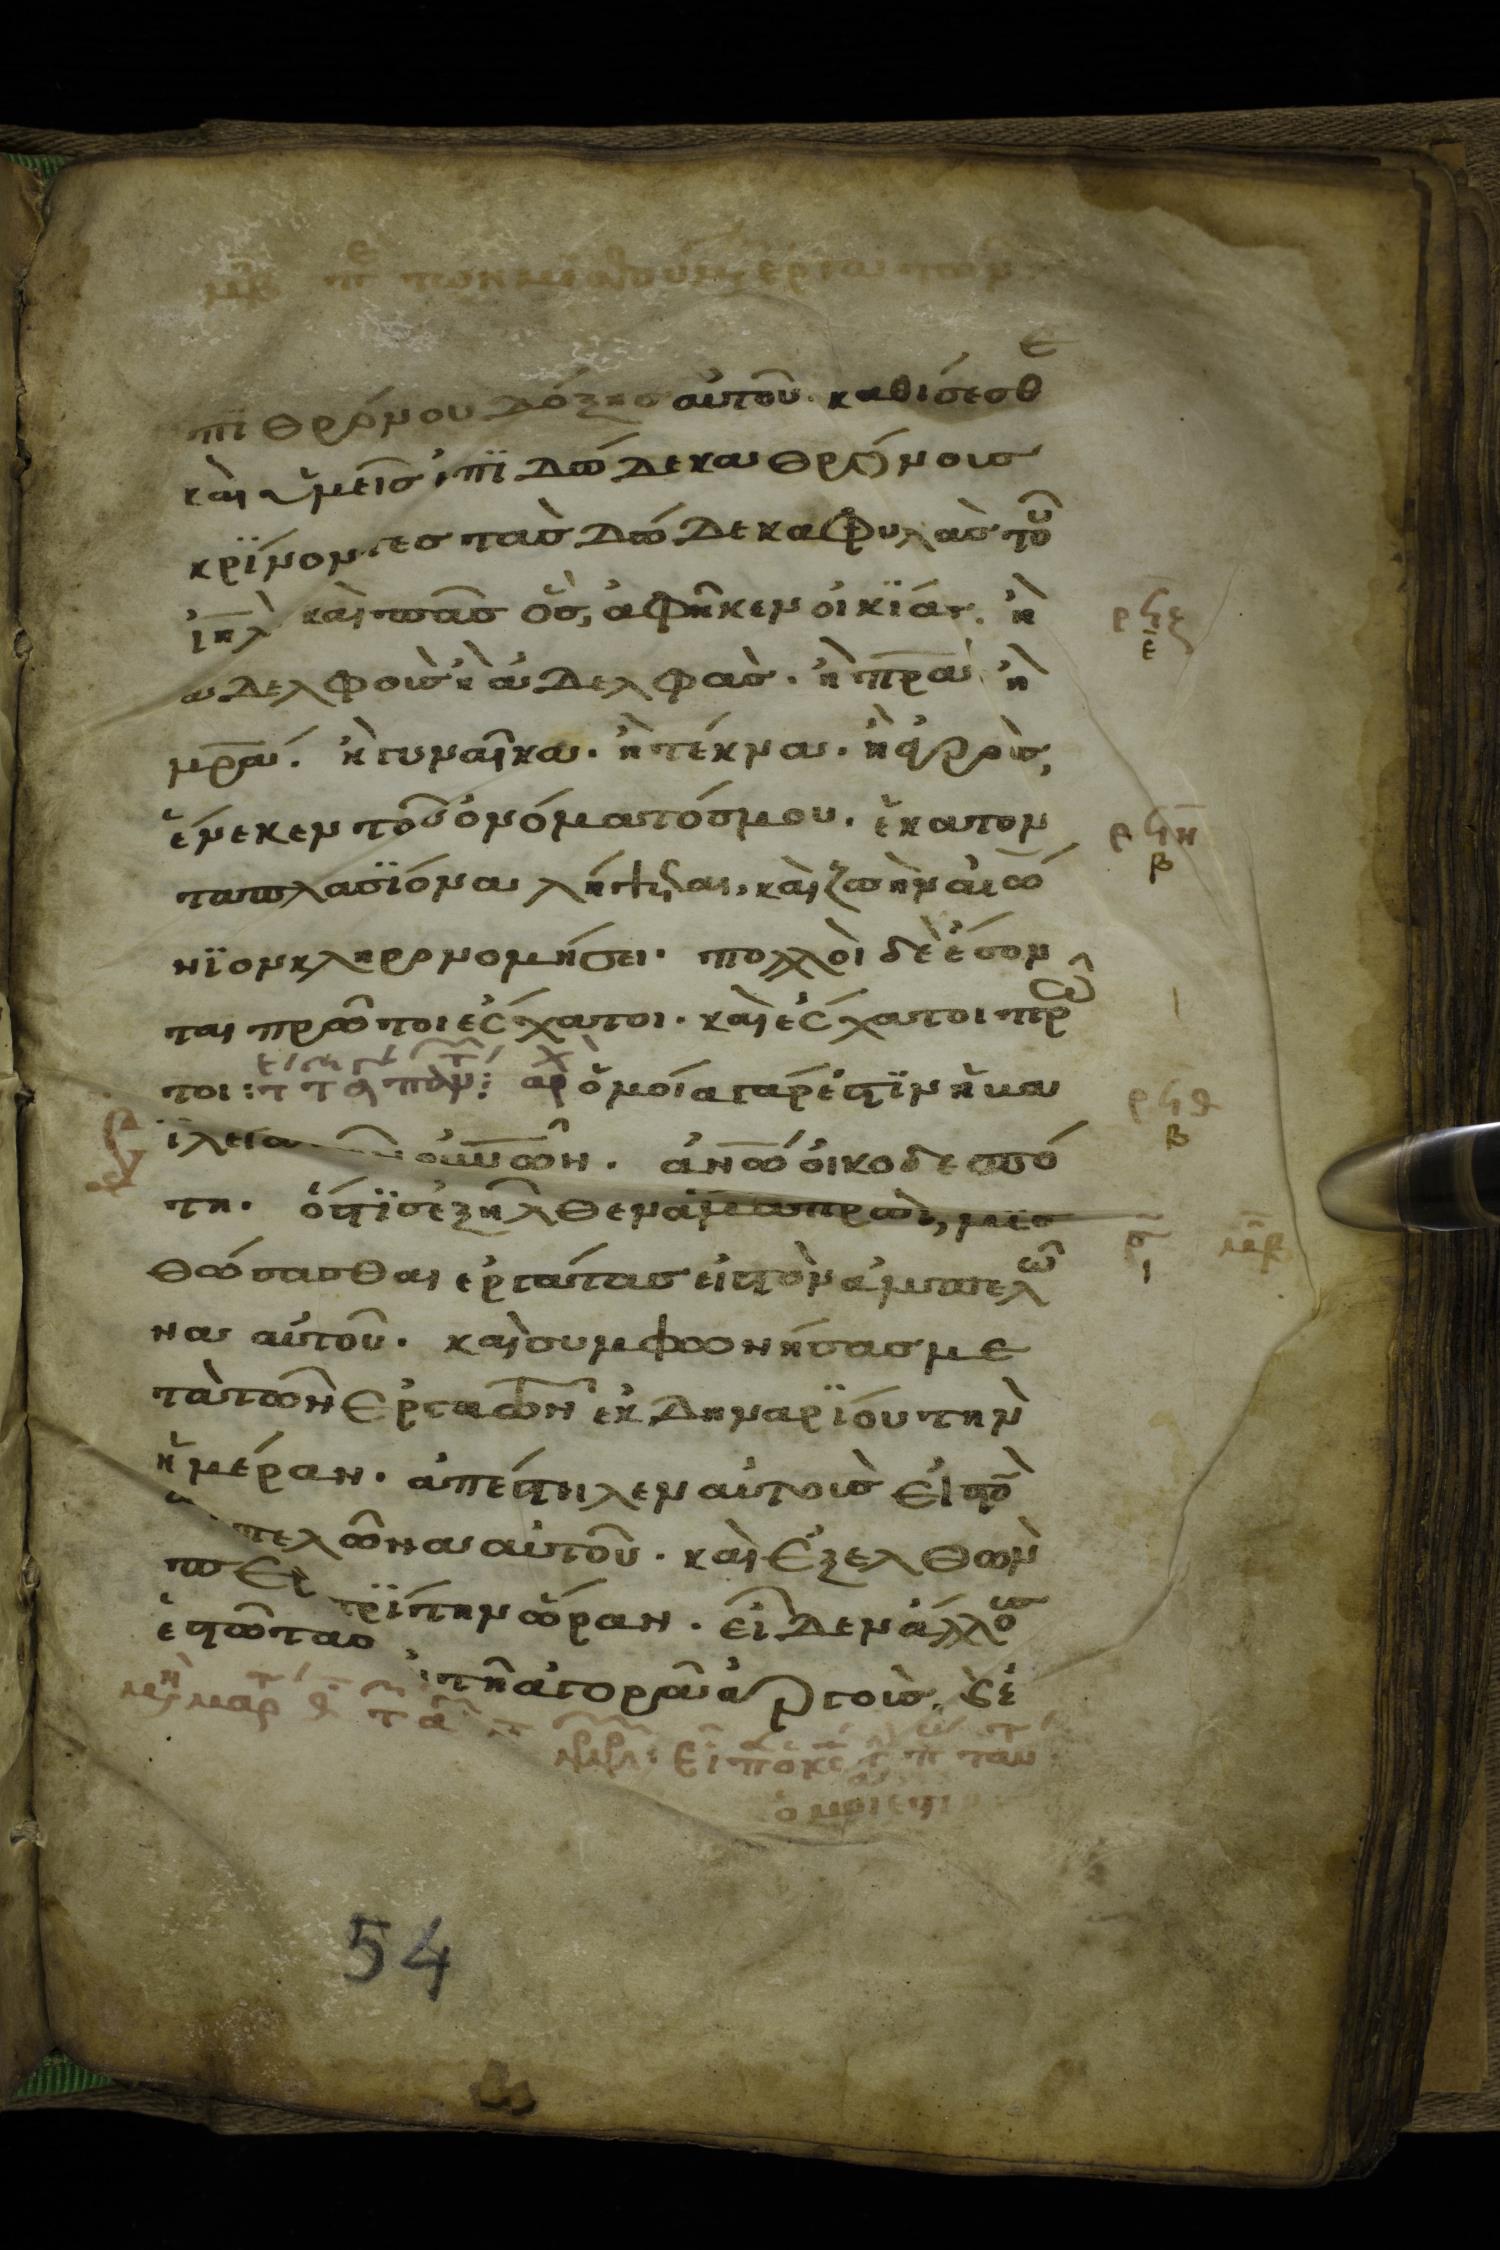 μβ πε των μισθουμ εργατων
πϊ θρόνου δόξης αὐτοῦ. καθίσεσθε
καὶ ὑμεῖς ἐπϊ δώδεκα θρόνοις
κρϊνοντες τὰς δώδεκα φυλὰς τοῦ
ἰηλ καὶ πᾶς ὅς, ἀφῆκεν οἰκϊάν. ἢ
ἀδελφοὺς ἢ ἀδελφὰς. ἢ πρα ἢ
μρα. ἢ γυναῖκα. ἢ τέκνα. ἢ ἀγροὺς,
ἕνεκεν τοῦ ὀνόματός μου. ἑκατον
ταπλασϊόνα λήψεται, καὶ ζωὴν αἰώ
νϊον κληρονομήσει. πολλοὶ δὲ ἔσον
ται πρῶτοι ἐσχατοι. καὶ ἐσχατοι πρῶ
τοι: αρ ὁμοία γάρ ἐστϊν ἡ βα
ϊλεία οὐνῶν. ἀνῶ οἰκοδεσπό
τη. ὅστϊς ἐξῆλθεν ἅμα πρωῒ, μϊσ
θώσασθαι ἐργάτας εἰς τὸν ἀμπελῶ
να αὐτοῦ. καὶ συμφωνήσας με
τὰ τῶν ἐργατῶν ἐκ δηναρϊόυ τὴν
ἡμέραν. ἀπέστειλεν αὐτοὺς εἰς τὸ
ἀ πελῶνα αὐτοῦ. καὶ ἐξελθὼν
περ τρϊτην ὥραν. εἶδεν ἄλλους
ἑστῶτας ἐν τῆ ἀγορᾶ ἀργοὺς. κἀ
ρϟζ
ε
ρϟη
β
ρϟθ
β
σ
ι
μβ
ειπ ο κς τ π ταυ
ομοι εστι
54